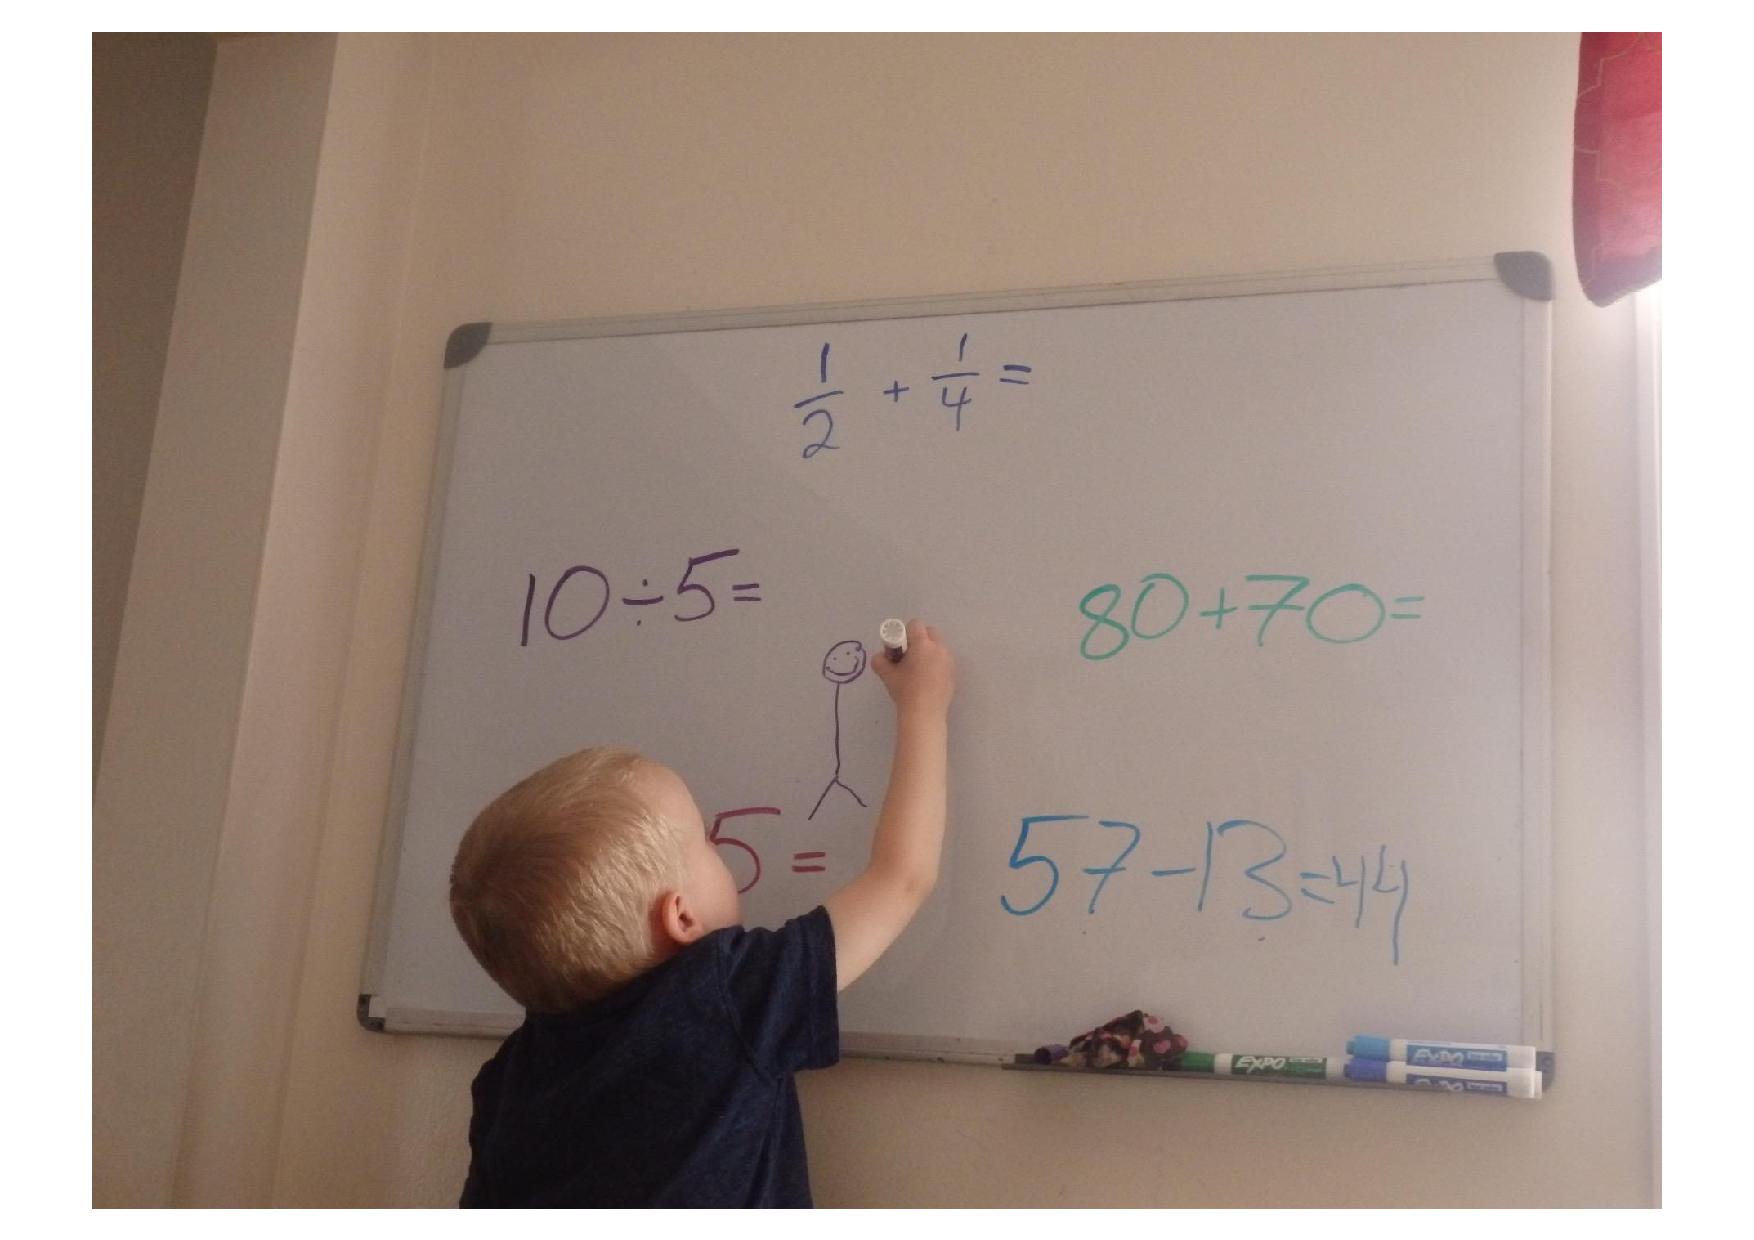 1/2 + 1/4 =
10÷5=
80+70=
5 =
57-13=44
EXPO
EXPO
EXPO